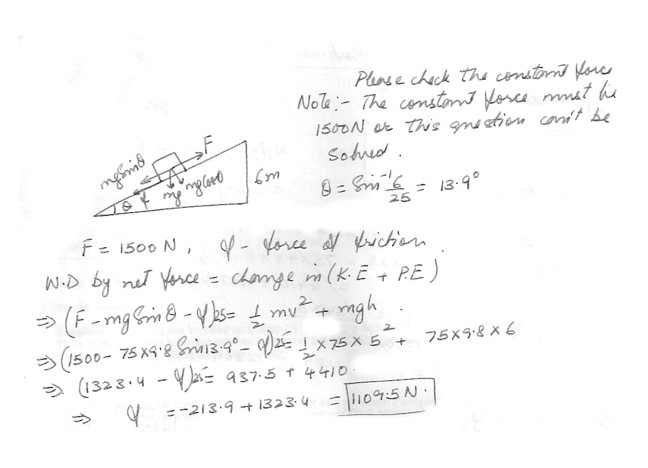 Please check the constant force
Note:- The constant force must be
1500N or this question can't be
Solved.
F
mgSinθ
mgCosθ
6m
θ f mg
θ = Sin⁻¹ 6/25 = 13.9°
F = 1500 N, f - force of friction
W.D by net force = change in (K.E + P.E)
⇒ (F - mgSinθ - f)25 = 1/2 mv² + mgh
⇒ (1500 - 75×9.8 Sin13.9° - f)25 = 1/2 × 75 × 5² + 75×9.8×6
⇒ (1323.4 - f)25 = 937.5 + 4410
⇒ f = -213.9 + 1323.4 = 1109.5 N.